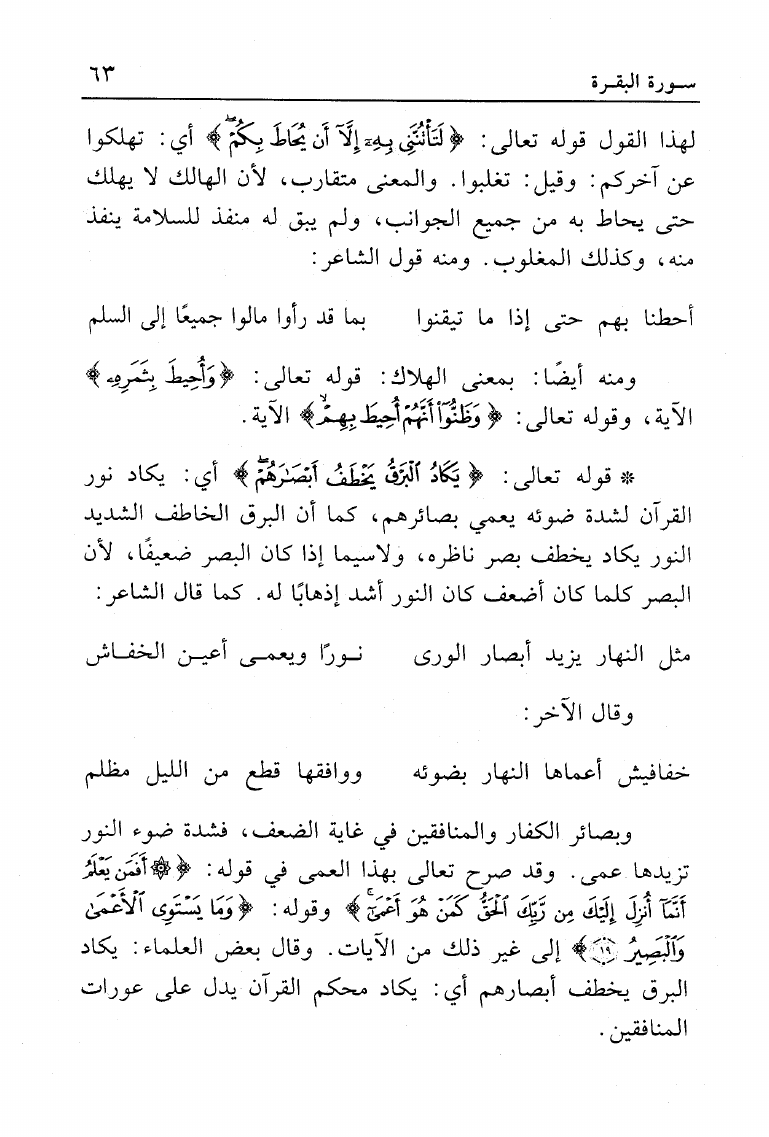 سـورة البقـرة
٦٣
لهذا القول قوله تعالى: ﴿ لَتَأْتُنَّنِي بِهِۦٓ إِلَّآ أَن يُحَاطَ بِكُمْۖ ﴾ أي: تهلكوا
عن آخركم: وقيل: تغلبوا. والمعنى متقارب، لأن الهالك لا يهلك
حتى يحاط به من جميع الجوانب، ولم يبق له منفذ للسلامة ينفذ
منه، وكذلك المغلوب. ومنه قول الشاعر:
أحطنا بهم حتى إذا ما تيقنوا بما قد رأوا مالوا جميعًا إلى السلم
ومنه أيضًا: بمعنى الهلاك: قوله تعالى: ﴿ وَأُحِيطَ بِثَمَرِهِۦ ﴾
الآية، وقوله تعالى: ﴿ وَظَنُّوٓاْ أَنَّهُمْ أُحِيطَ بِهِمْۙ ﴾ الآية.
* قوله تعالى: ﴿ يَكَادُ ٱلْبَرْقُ يَخْطَفُ أَبْصَٰرَهُمْۖ ﴾ أي: يكاد نور
القرآن لشدة ضوئه يعمي بصائرهم، كما أن البرق الخاطف الشديد
النور يكاد يخطف بصر ناظره، ولاسيما إذا كان البصر ضعيفًا، لأن
البصر كلما كان أضعف كان النور أشد إذهابًا له. كما قال الشاعر:
مثل النهار يزيد أبصار الورى نـورًا ويعمـى أعيـن الخفـاش
وقال الآخر:
خفافيش أعماها النهار بضوئه ووافقها قطع من الليل مظلم
وبصائر الكفار والمنافقين في غاية الضعف، فشدة ضوء النور
تزيدها عمى. وقد صرح تعالى بهذا العمى في قوله: ﴿ ۞ أَفَمَن يَعْلَمُ
أَنَّمَآ أُنزِلَ إِلَيْكَ مِن رَّبِّكَ ٱلْحَقُّ كَمَنْ هُوَ أَعْمَىٰٓۚ ﴾ وقوله: ﴿ وَمَا يَسْتَوِى ٱلْأَعْمَىٰ
وَٱلْبَصِيرُ ١٩ ﴾ إلى غير ذلك من الآيات. وقال بعض العلماء: يكاد
البرق يخطف أبصارهم أي: يكاد محكم القرآن يدل على عورات
المنافقين.